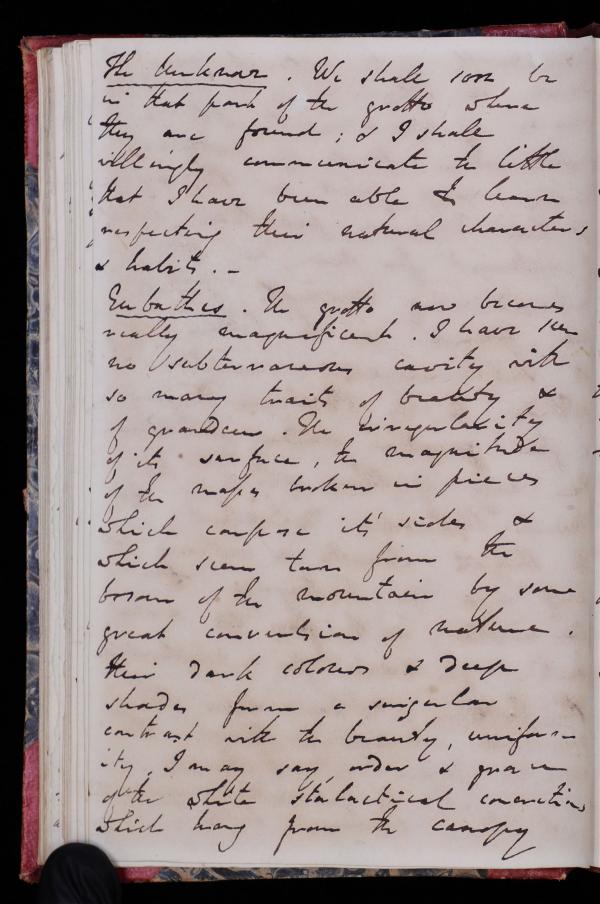 The Unknown. We shall soon be
in that part of the grotto where
they are found; & I shall
willingly communicate the little
that I have been able to learn
respecting their natural characters
& habits. –
Eubathes. The grotto now becomes
really magnificent. I have seen
no subterraneous cavity with
so many traits of beauty &
of grandeur. The irregularity
of its surface, the magnitude
of the masses broken in pieces
which compose its' sides &
which seem torn from the
bosom of the mountain by some
great convulsion of nature.
Their dark colours & deep
shades form a singular
contrast with the beauty, uniform
ity, I may say, order & grace
of the white stalactical concretions
which hang from the canopy